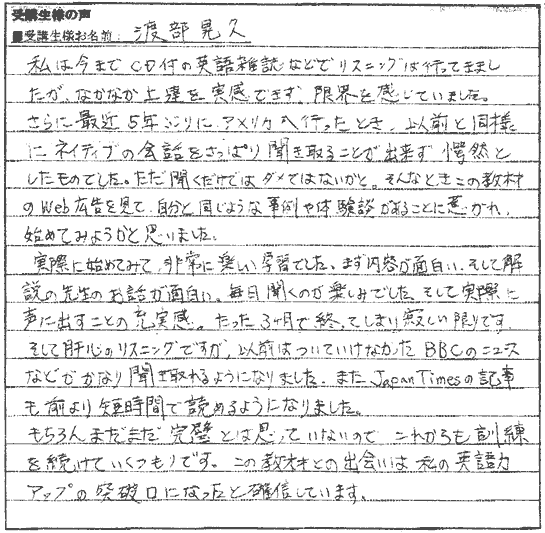 受講生様の声
■受講生様お名前: 渡部晃久
私は今まで CD付の英語雑誌などでリスニングは行ってきまし
たが、なかなか上達を実感できず、限界を感じていました。
さらに最近5年ぶりにアメリカへ行ったとき、以前と同様
にネイティブの会話をさっぱり聞き取ることが出来ず愕然と
したものでした。ただ聞くだけではダメではないかと。そんなときこの教材
のWeb広告を見て、自分と同じような事例や体験談があることに惹かれ、
始めてみようかと思いました。
実際に始めてみて、非常に楽しい学習でした。まず内容が面白い、そして解
説の先生のお話が面白い、毎日聞くのが楽しみでした。そして実際に
声に出すことの充実感。たった3ヶ月で終ってしまい寂しい限りです。
そして肝心のリスニングですが、以前はついていけなかったBBCのニュース
などがかなり聞き取れるようになりました。またJapan Timesの記事
も前より短時間で読めるようになりました。
もちろんまだまだ完璧とは思っていないので、これからも訓練
を続けていくつもりです。この教材との出会いは私の英語力
アップの突破口になったと確信しています。